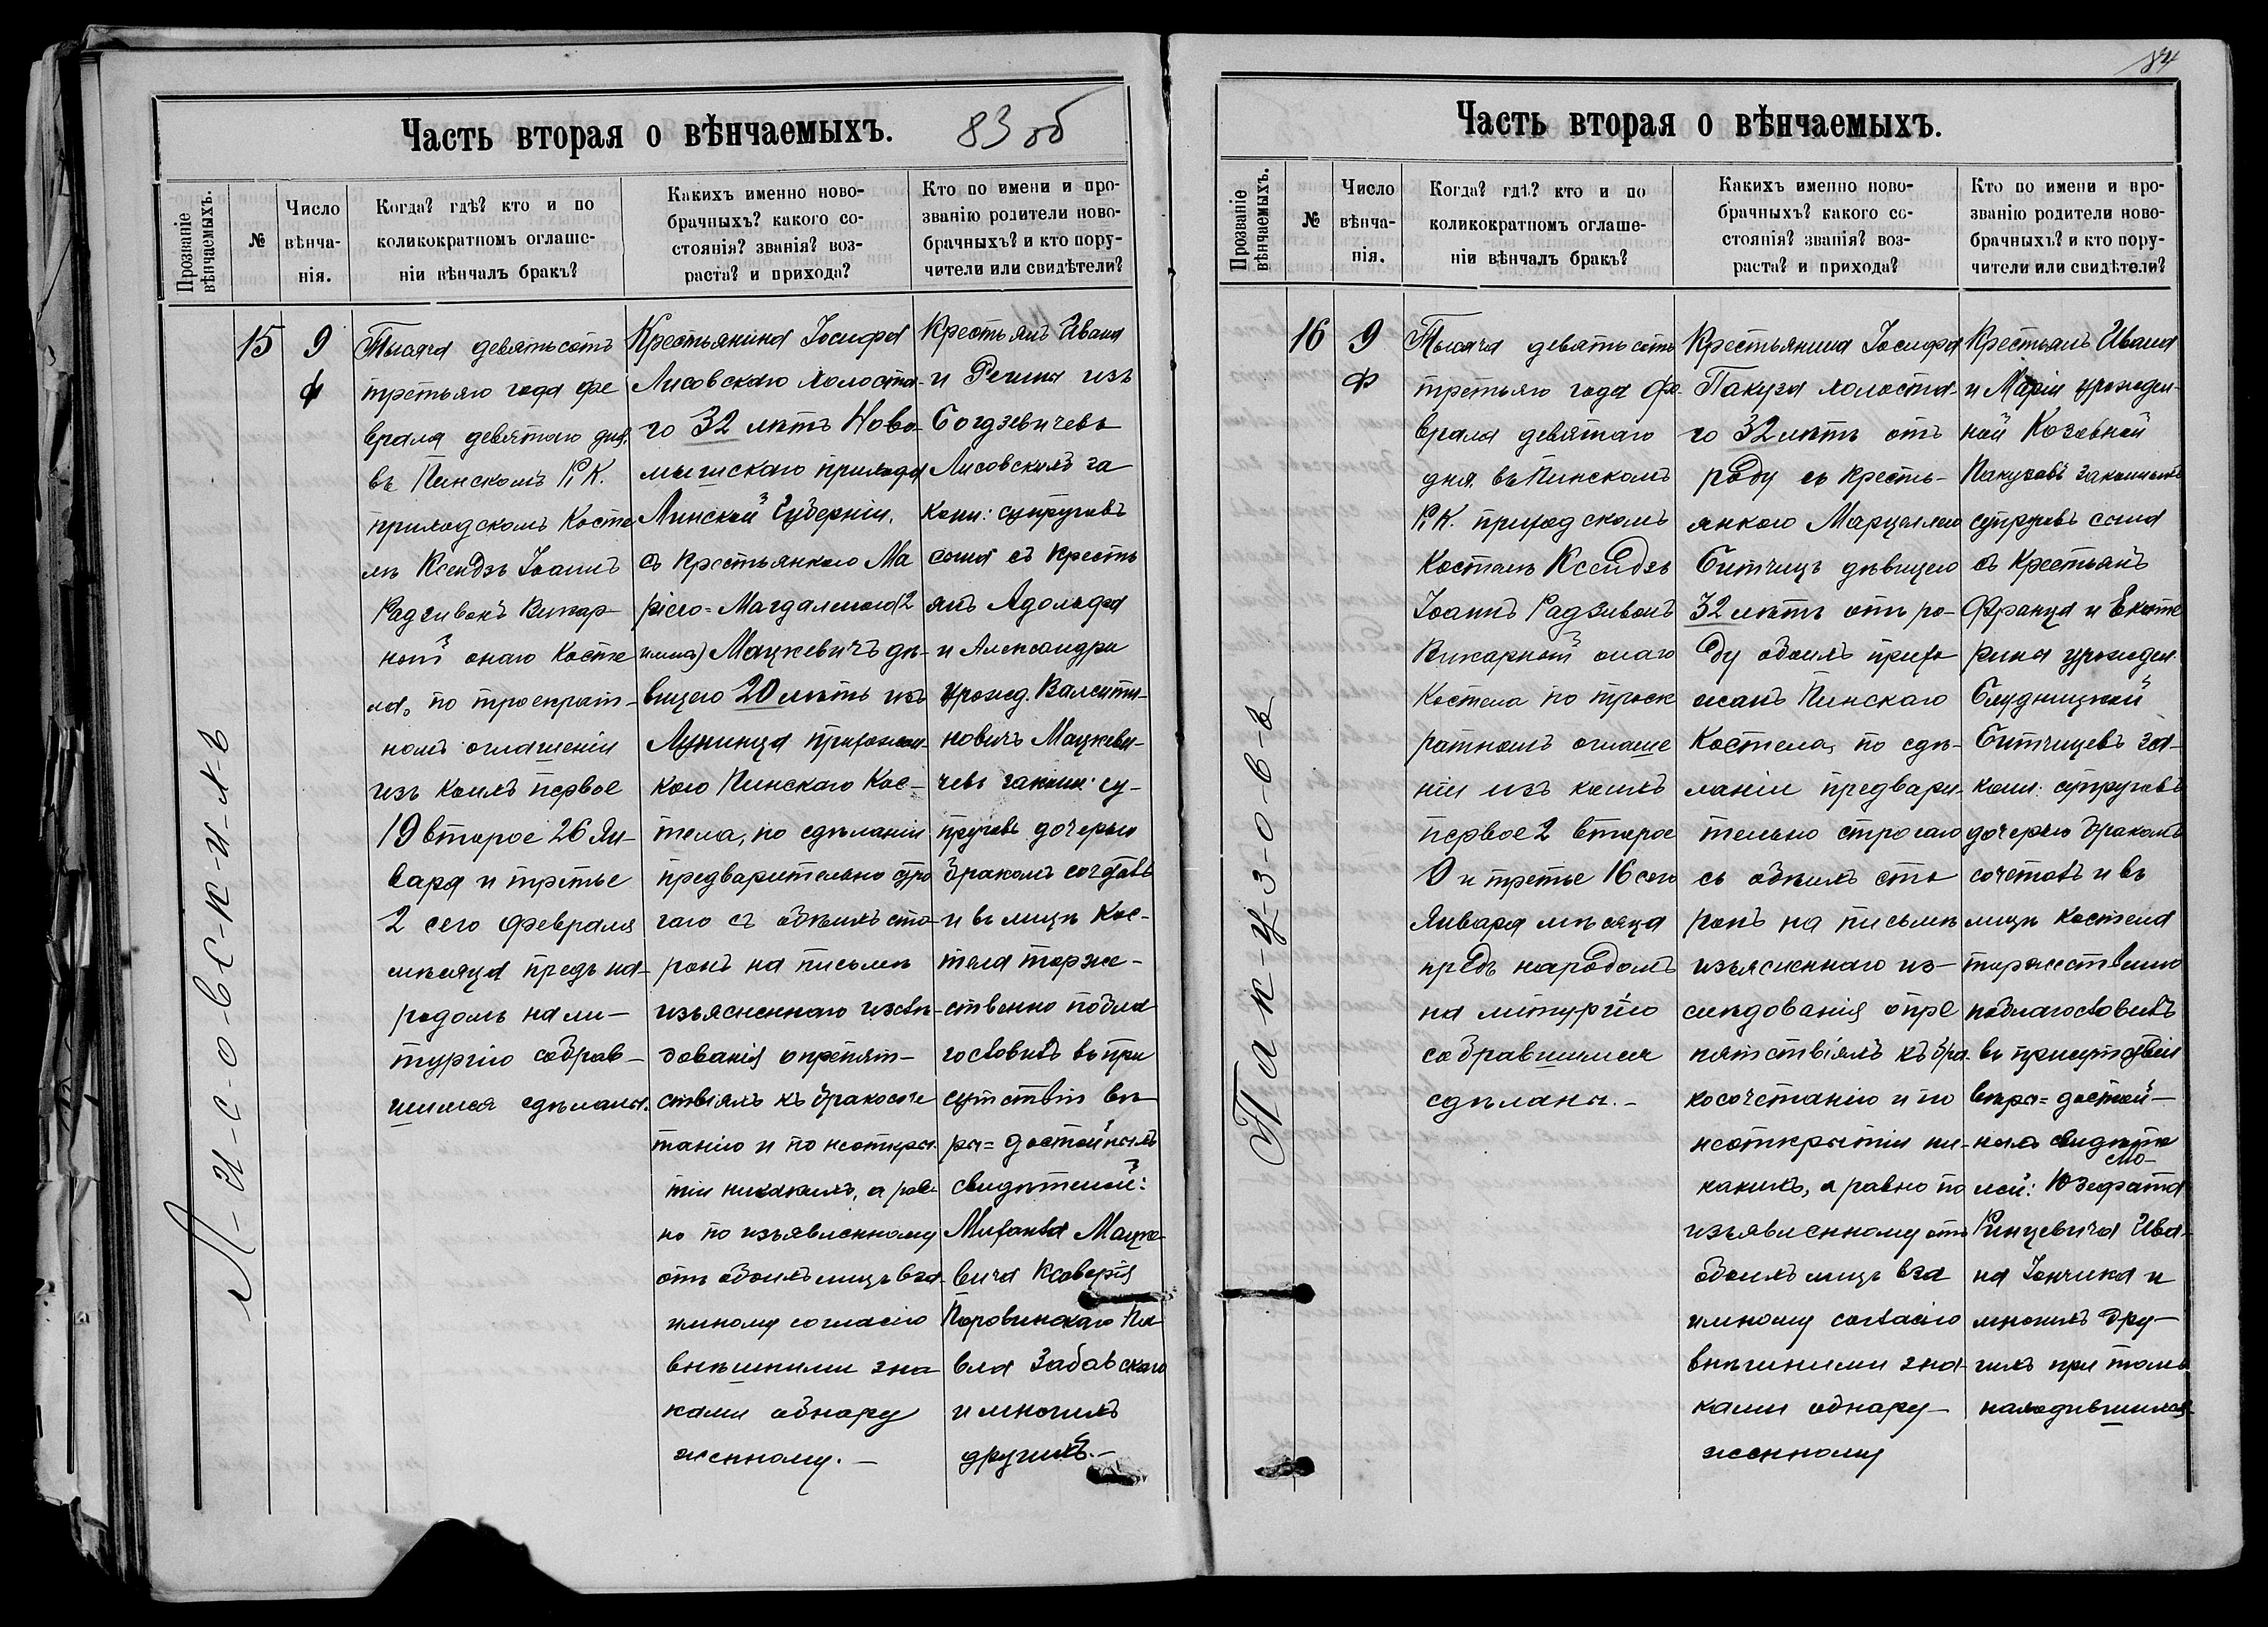 Часть вторая о вѣнчаемыхъ.
83 об
Прозваніе вѣнчаемыхъ.
№
Число вѣнча-
нія.
Когда? гдѣ? кто и по
коликократномъ оглаше-
ніи вѣнчалъ бракъ?
Какихъ именно ново-
брачныхъ? какого со-
стоянія? званія? воз-
раста? и прихода?
Кто по имени и про-
званію родители ново-
брачныхъ? и кто пору-
чители или свидѣтели?
Л-и-с-о-в-с-к-и-х-ъ
15
9
ф
Тысяча девятьсотъ
третьяго года фе
враля девятаго дня,
въ Пинскомъ Р. К.
приходскомъ Косте
лѣ Ксендзъ Іоаннъ
Радзивонъ Викар-
ной онаго Косте
ла, по троекрат-
номъ оглашеніи
изъ коихъ первое
19 второе 26 Ян-
варя и третье
2 сего Февраля
мѣсяца предъ на-
родомъ на ли-
тургію собрав-
шимся сдѣланы.
Крестьянина Іосифа
Лисовскаго холоста-
го 32 лѣтъ Ново-
мышскаго прихода
Минской Губерніи,
съ крестьянкою Ма
ріею-Магдаленою (2
имена) Мацкевичъ дѣ-
вицею 20 лѣтъ изъ
Лунинца прихожан-
кою Пинскаго Кос-
тела, по сдѣланіи
предварительно стро
гаго съ обѣихъ сто-
ронъ на письмѣ
изъясненнаго изслѣ-
дованія о препят-
ствіяхъ къ бракосоче
танію и по неоткры-
тіи никакихъ, а рав-
но по изъявленному
отъ обоихъ лицъ вза-
имному согласію
внѣшними зна-
ками обнару
женному. —
Крестьянъ Ивана
и Регины изъ
Богдзевичевъ
Лисовскихъ за
конн: супруговъ
сына съ кресть
янъ Адольфа
и Александры
урожд. Валенти-
новичъ Мацкеви-
чевъ законн: су-
пруговъ дочерью
бракомъ сочеталъ
и въ лицѣ Кос-
тела торже-
ственно побла-
гословилъ въ при
сутствіи вѣ-
ры-достойныхъ
свидѣтелей:
Михаила Мацке-
вича Ксаверія
Поровинскаго Па-
вла Забавскаго
и многихъ
другихъ.—
84
Часть вторая о вѣнчаемыхъ.
Прозваніе вѣнчаемыхъ.
№
Число
вѣнча-
нія.
Когда? гдѣ? кто и по
коликократномъ оглаше-
ніи вѣнчалъ бракъ?
Какихъ именно ново-
брачныхъ? какого со-
стоянія? званія? воз-
раста? и прихода?
Кто по имени и про-
званію родители ново-
брачныхъ? и кто пору-
чители или свидѣтели?
П-а-к-у-з-о-в-ъ
16
9
Ф
Тысяча девятьсотъ
третьяго года Фе-
враля девятаго
дня, въ Пинскомъ
Р. К. приходскомъ
Костелѣ Ксендзъ
Іоаннъ Радзивонъ
Викарной онаго
Костела по троек
ратномъ оглаше
ніи изъ коихъ
первое 2 второе
9 и третье 16 сего
Января мѣсяца
предъ народомъ
на литургію
собравшимся
сдѣланы. —
Крестьянина Іосифа
Пакуза холоста-
го 32 лѣтъ отъ
роду съ кресть-
янкою Марцеллею
Битчицъ дѣвицею
32 лѣтъ отъ ро-
ду обоихъ прихо
жанъ Пинскаго
Костела, по сдѣ-
ланіи предвари-
тельно строгаго
съ обѣихъ сто
ронъ на письмѣ
изъясненнаго из-
слѣдованія о пре
пятствіяхъ къ бра-
косочетанію и по
неоткрытіи ни-
какихъ, а равно по
изъявленному отъ
обоихъ лицъ вза
имному согласію
внѣшними зна-
ками обнару-
женному
Крестьянъ Ивана
и Маріи урожден-
ной Козевной
Пакузовъ законныхъ
супруговъ сына
съ Крестьянъ
Франца и Екате
рины урожден.
Блудницкой
Битчицевъ за-
конн: супруговъ
дочерью бракомъ
сочеталъ и въ
лицѣ Костела
торжественно
поблагословилъ
въ присутствіи
вѣры-достой-
ныхъ свидѣте
лей: Юзефата
Ринцевича Ива-
на Іончика и
многихъ дру-
гихъ при томъ
находившихся